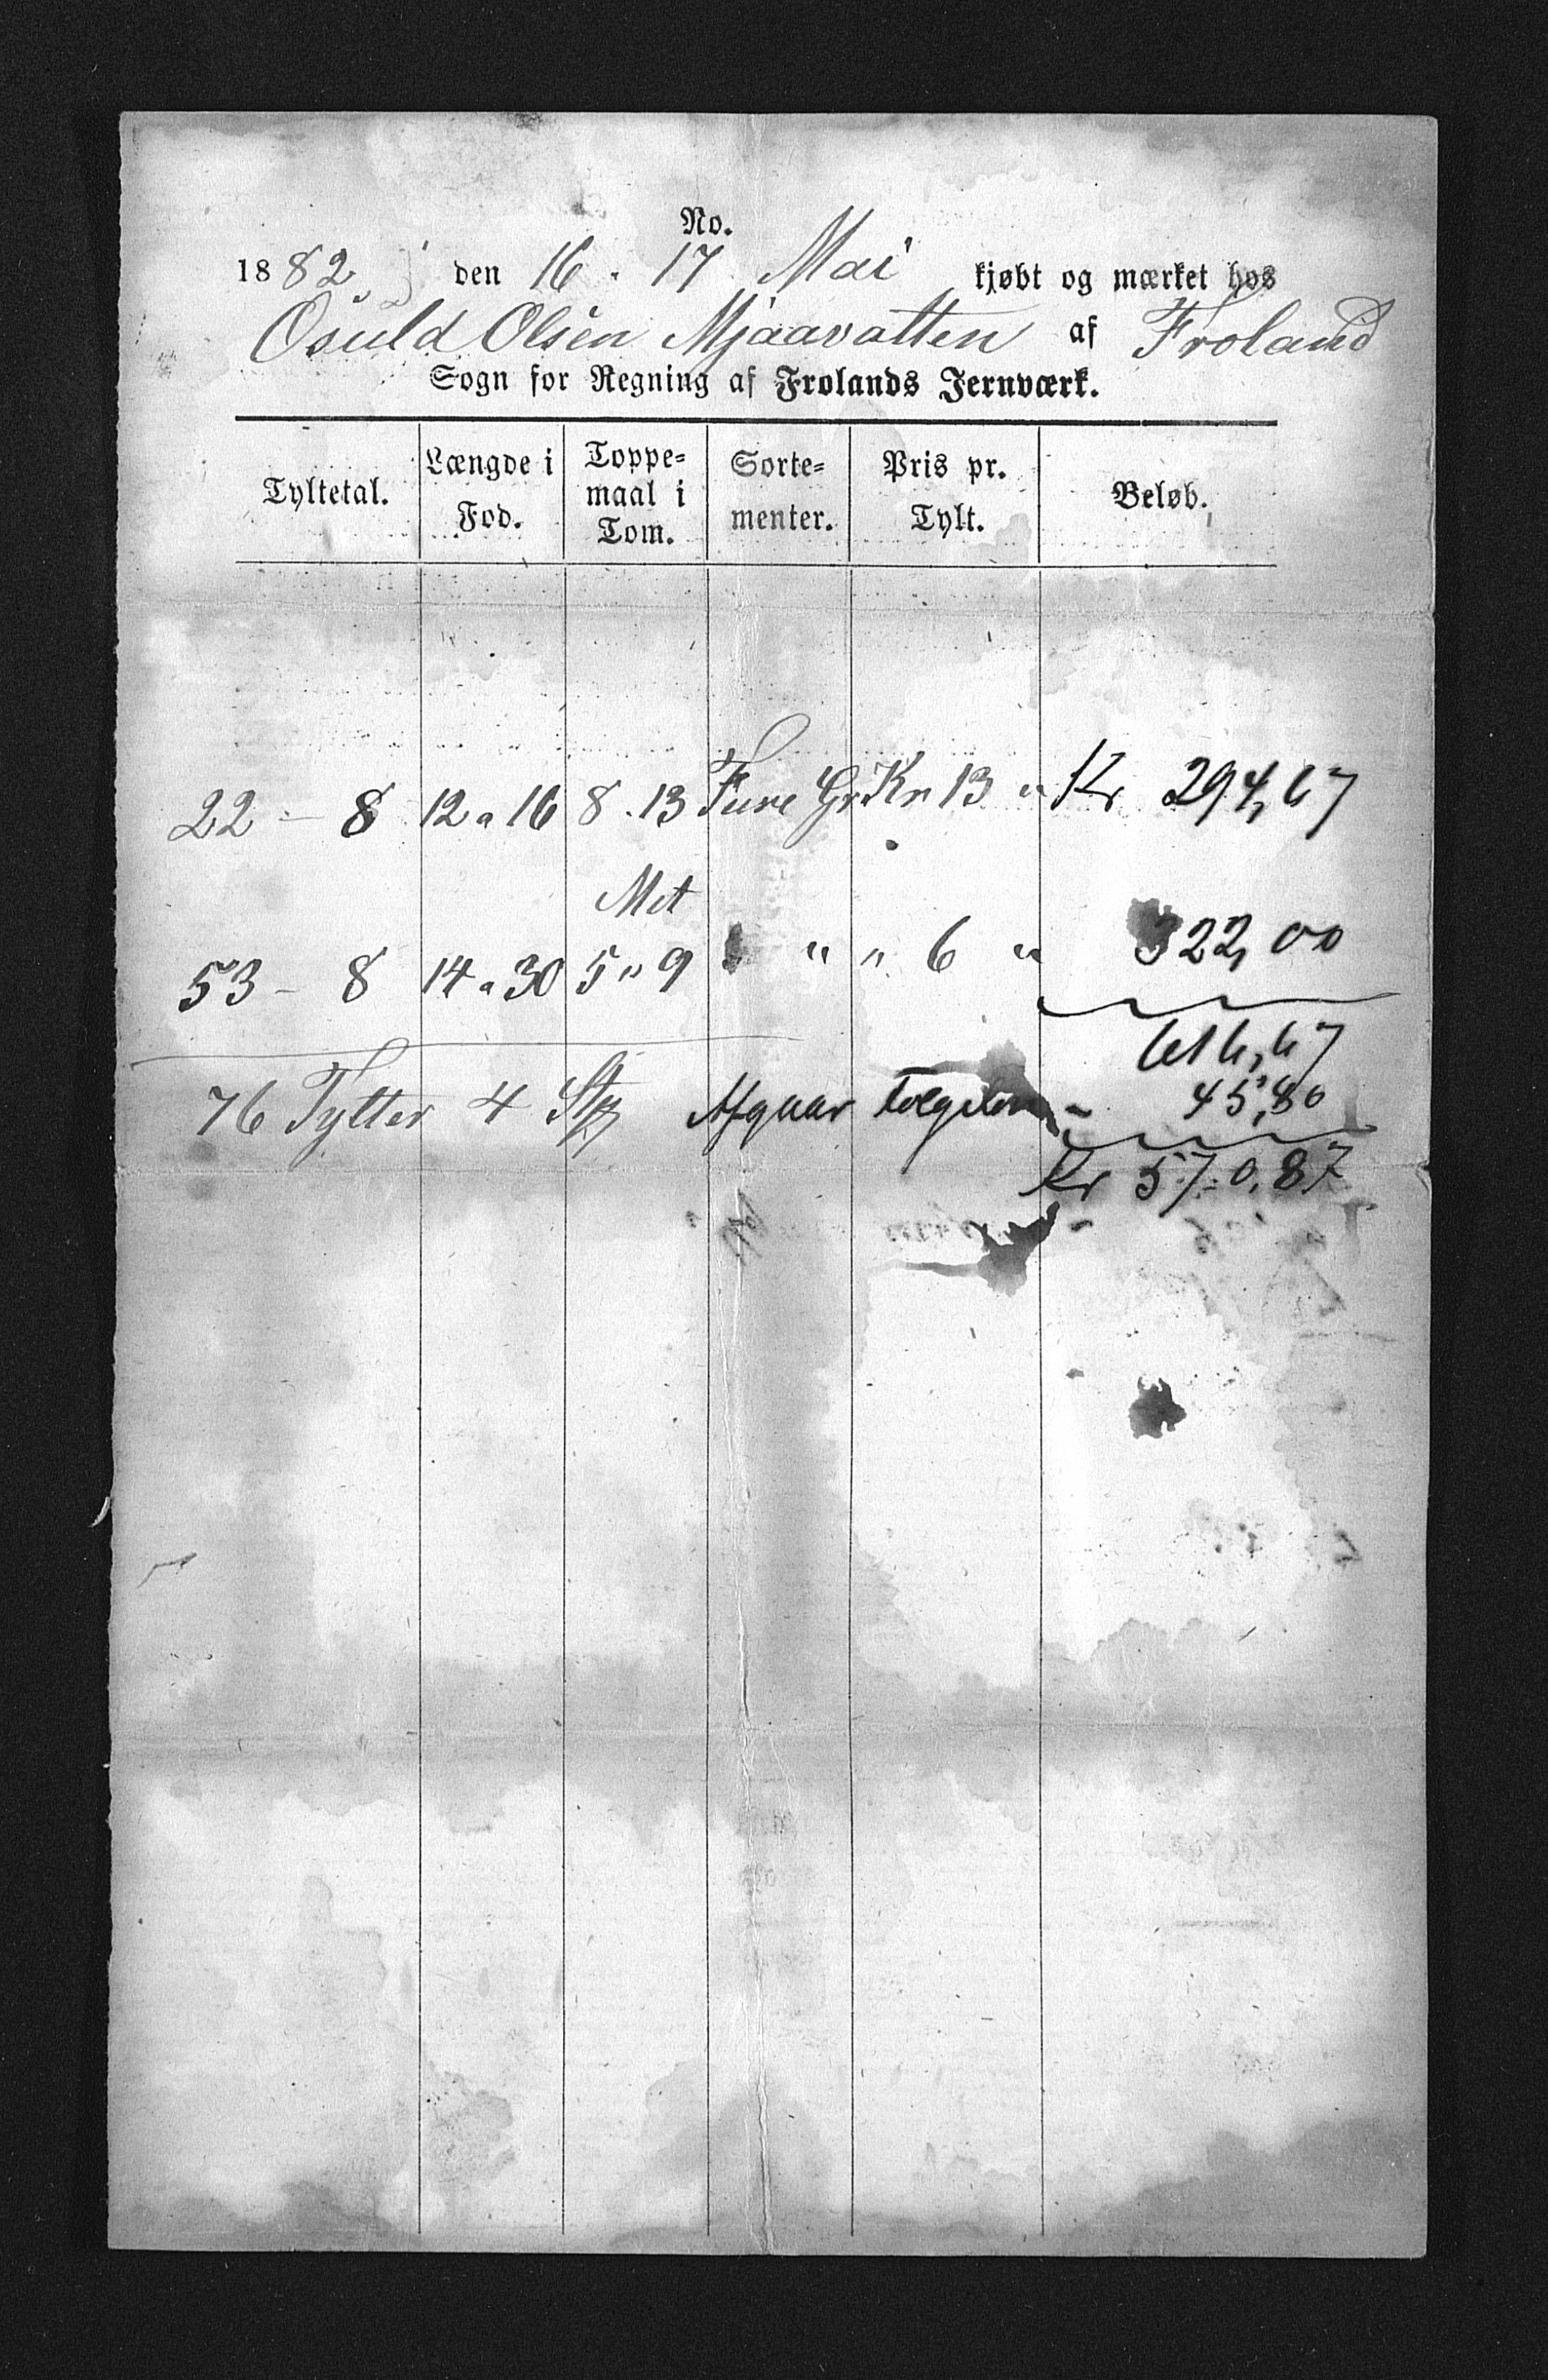 No.
1882, den 16 . 17 Mai kjøbt og mærket hos
Osuld Olsen Mjaavatten af Froland
Sogn for Regning af Frolands Jernværk.
Tyltetal. Længde i Fod. Toppe-maal i Tom. Sorte-menter. Pris pr. Tylt. Beløb.
22 - 8 12 a 16 8 . 13 Furu Gr Kr 13 " Kr 294,67
Met
53 - 8 14 a 30 5 " 9 " " 6 " 322,00
616,67
76 Tylter 4 Stk - 45,80
Kr 570,87